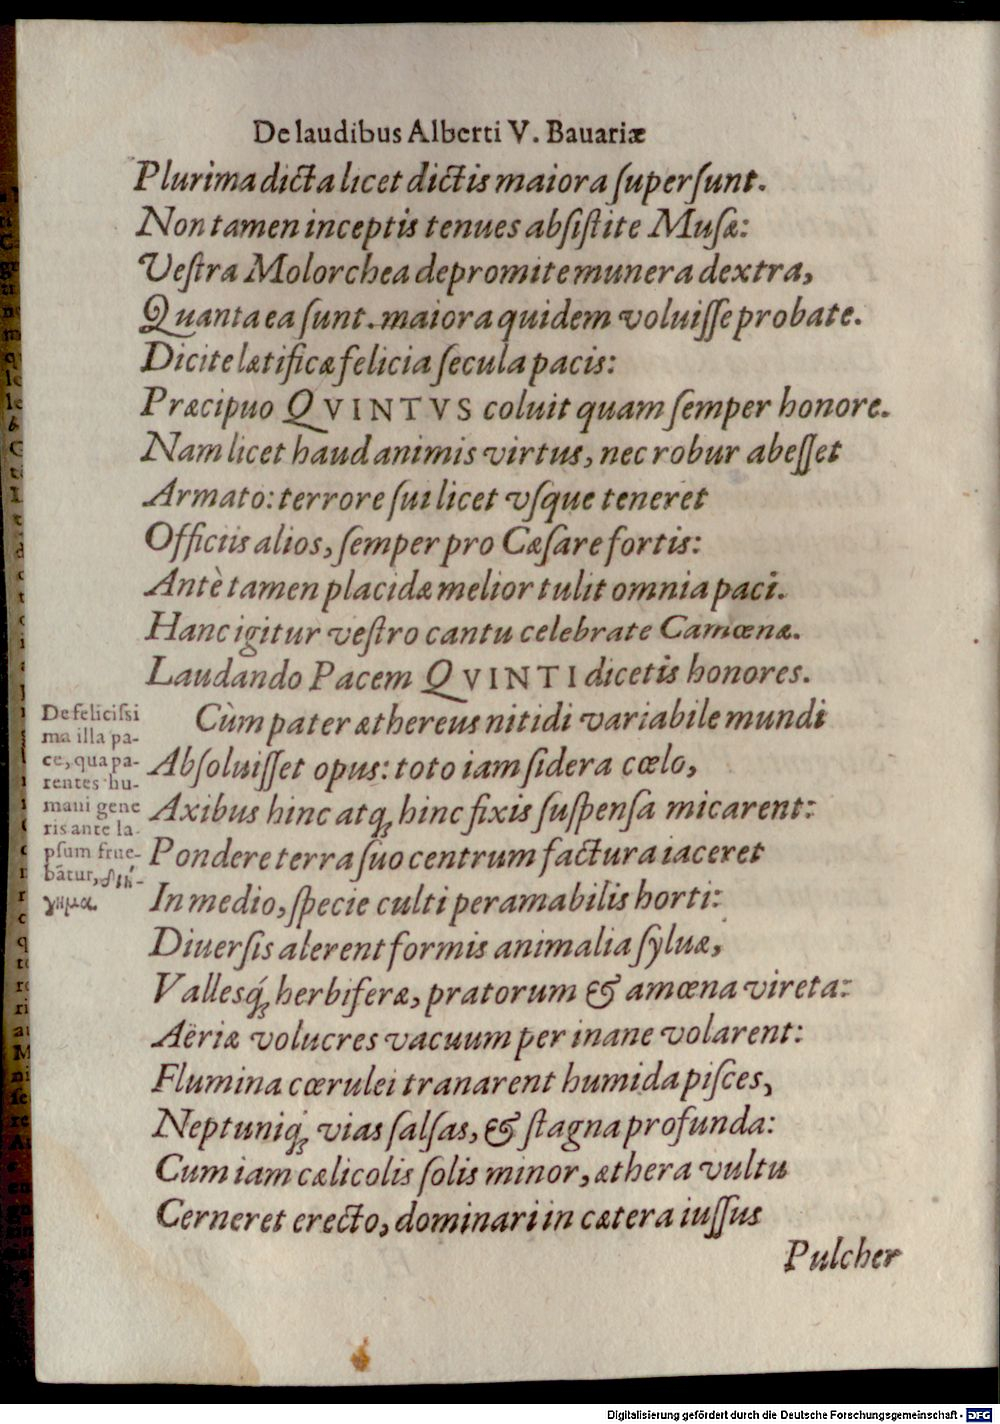 De laudibus Alberti V. Bauariæ
Plurima dicta licet dictis maiora ſuperſunt.
Non tamen inceptis tenues abſiſtite Muſæ:
Veſtra Molorchea depromite munera dextra,
Quanta ea ſunt. maiora quidem voluiſſe probate.
Dicite lætificæ felicia ſecula pacis:
Præcipuo QVINTVS coluit quam ſemper honore.
Nam licet haud animis virtus, nec robur abeſſet
Armato: terrore ſui licet vſque teneret
Officiis alios, ſemper pro Cæſare fortis:
Antè tamen placidæ melior tulit omnia paci.
Hanc igitur veſtro cantu celebrate Camœnæ.
Laudando Pacem QVINTI dicetis honores.
De feliciſsi
ma illa pa-
ce, qua pa-
rentes hu-
mani gene
ris ante la-
pſum frue-
bātur, διή-
γημα.
Cùm pater æthereus nitidi variabile mundi
Abſoluiſſet opus: toto iam ſidera cœlo,
Axibus hinc atq; hinc fixis ſuſpenſa micarent:
Pondere terra ſuo centrum factura iaceret
In medio, ſpecie culti peramabilis horti:
Diuerſis alerent formis animalia ſyluæ,
Vallesq́; herbiferæ, pratorum & amœna vireta:
Aëriæ volucres vacuum per inane volarent:
Flumina cœrulei tranarent humida piſces,
Neptuniq́; vias ſalſas, & ſtagna profunda:
Cum iam cælicolis ſolis minor, æthera vultu
Cerneret erecto, dominari in cætera iuſſus
Pulcher
Digitalisierung gefördert durch die Deutsche Forschungsgemeinschaft - DFG